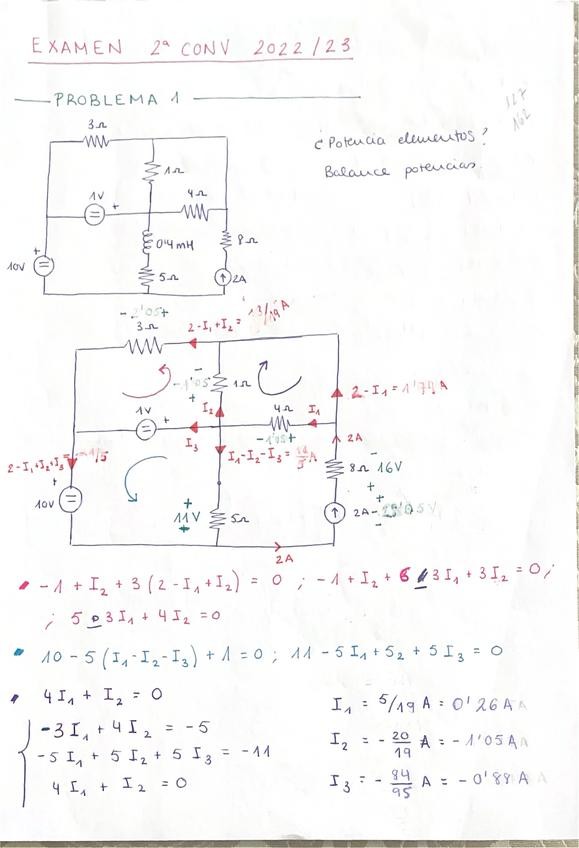 EXAMEN 2ª CONV 2022/23
PROBLEMA 1
127
162
¿Potencia elementos?
Balance potencias.
3Ω
1Ω
1V
+
4Ω
0'4mH
8Ω
+
10V
5Ω
2A
13/19 A
2-I₁+I₂=
3Ω
1Ω
2-I₁=1'74 A
1V
+
I₂
4Ω
I₁
I₃
2A
2-I₁+I₂+I₃=-1/5
I₁-I₂-I₃=
8Ω 16V
+
10V
11V
5Ω
2A
2A
• -1 + I₂ + 3(2-I₁+I₂) = 0 ; -1+I₂+6-3I₁+3I₂=0;
; 5-3I₁+4I₂=0
• 10-5(I₁-I₂-I₃)+1=0; 11-5I₁+5₂+5I₃=0
• 4I₁+I₂=0
-3I₁+4I₂=-5
-5I₁+5I₂+5I₃=-11
4I₁+I₂=0
I₁ = 5/19 A = 0'26 A
I₂ = -20/19 A = -1'05 A
I₃ = -84/95 A = -0'88 A